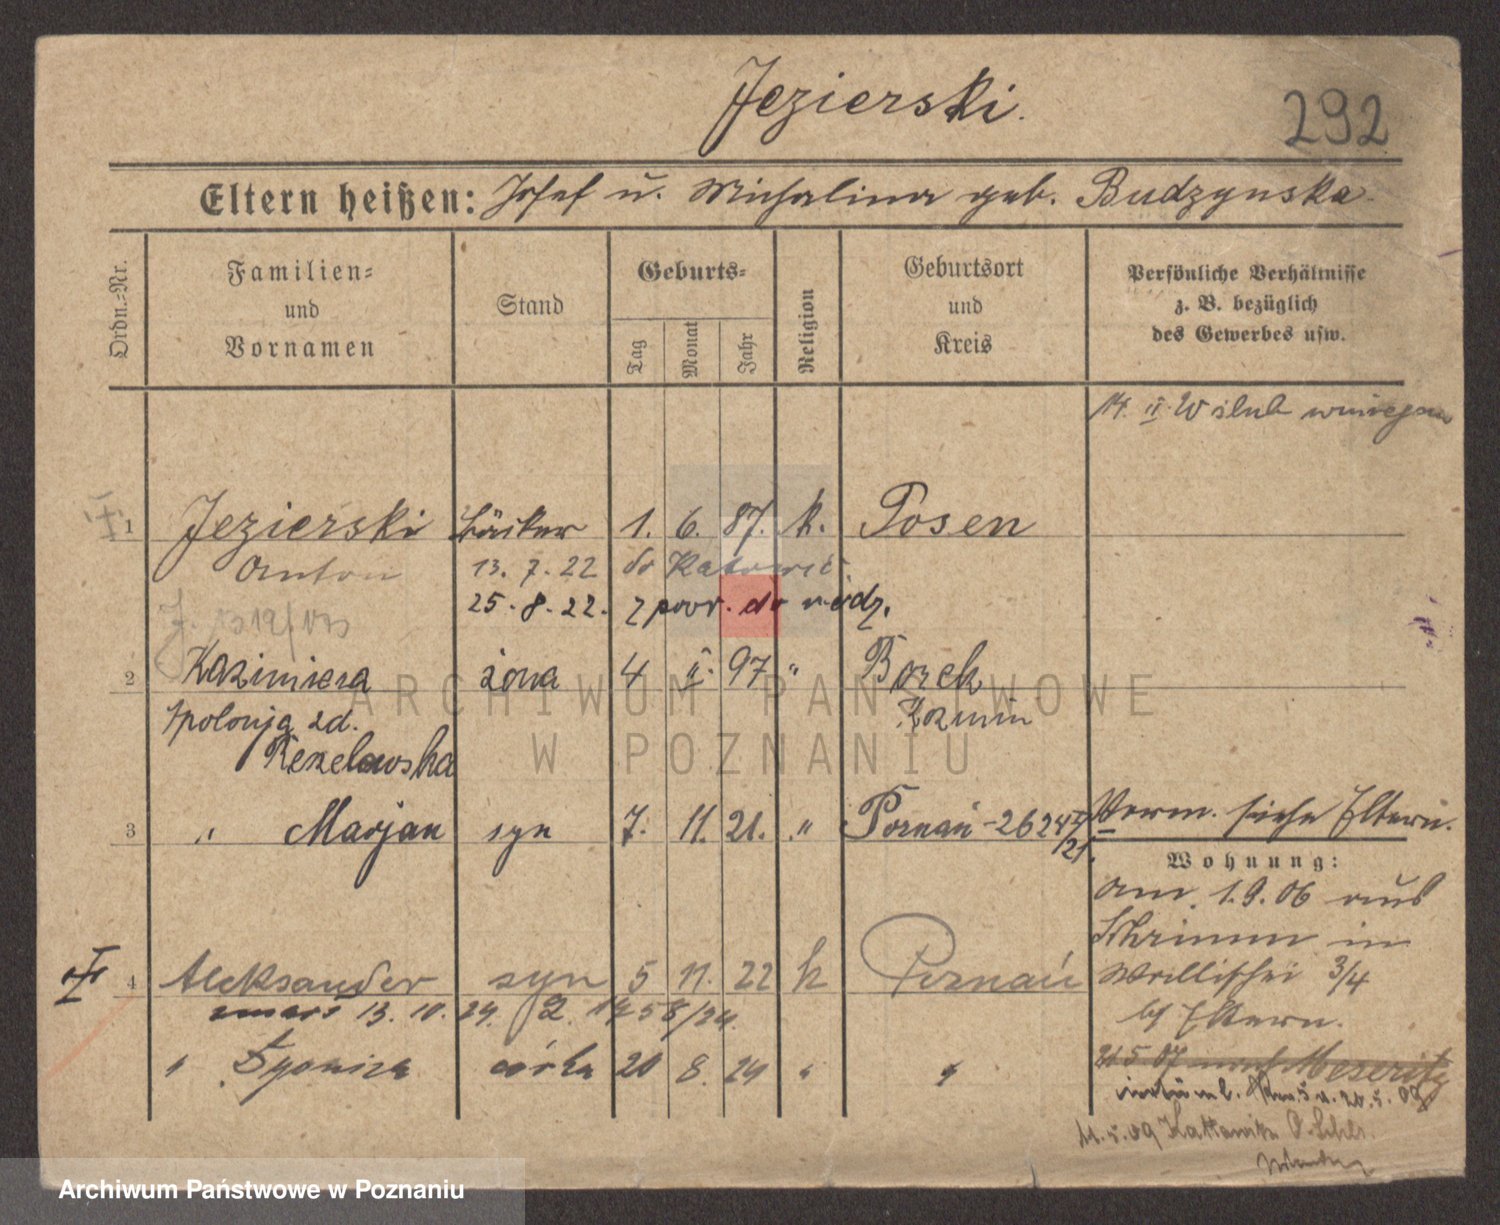 Jezierski.
292
Eltern heißen: Josef u. Michalina geb. Budzynska
Ordn.=Nr.
Familien=
und
Vornamen
Stand
Geburts=
Tag
Monat
Jahr
Religion
Geburtsort
und
Kreis
Persönliche Verhältnisse
z. B. bezüglich
des Gewerbes usw.
14. II.
1 Jezierski Bäcker 1. 6. 87. k. Posen
Anton 13. 7. 22 do Katowic
25. 8. 22. z powr. do
2 Kazimiera żona 4 II. 97 " Borek
Apolonja zd. Kozmin
3 " Marjan syn 7. 11. 21. " Poznań - 2624
Verm. siehe Eltern.
Wohnung:
am 1.9.06 aus
Schrimm in
Wallischei 3/4
bj Eltern.
4 Aleksander syn 5 11. 22 k Poznań
zmarł 13. 10. 24.
" córka 20 8. 24 " "
21 5 07 nach Meseritz
11.5.09 Kattowitz O. Schl.
ARCHIWUM PAŃSTWOWE
W POZNANIU
Archiwum Państwowe w Poznaniu